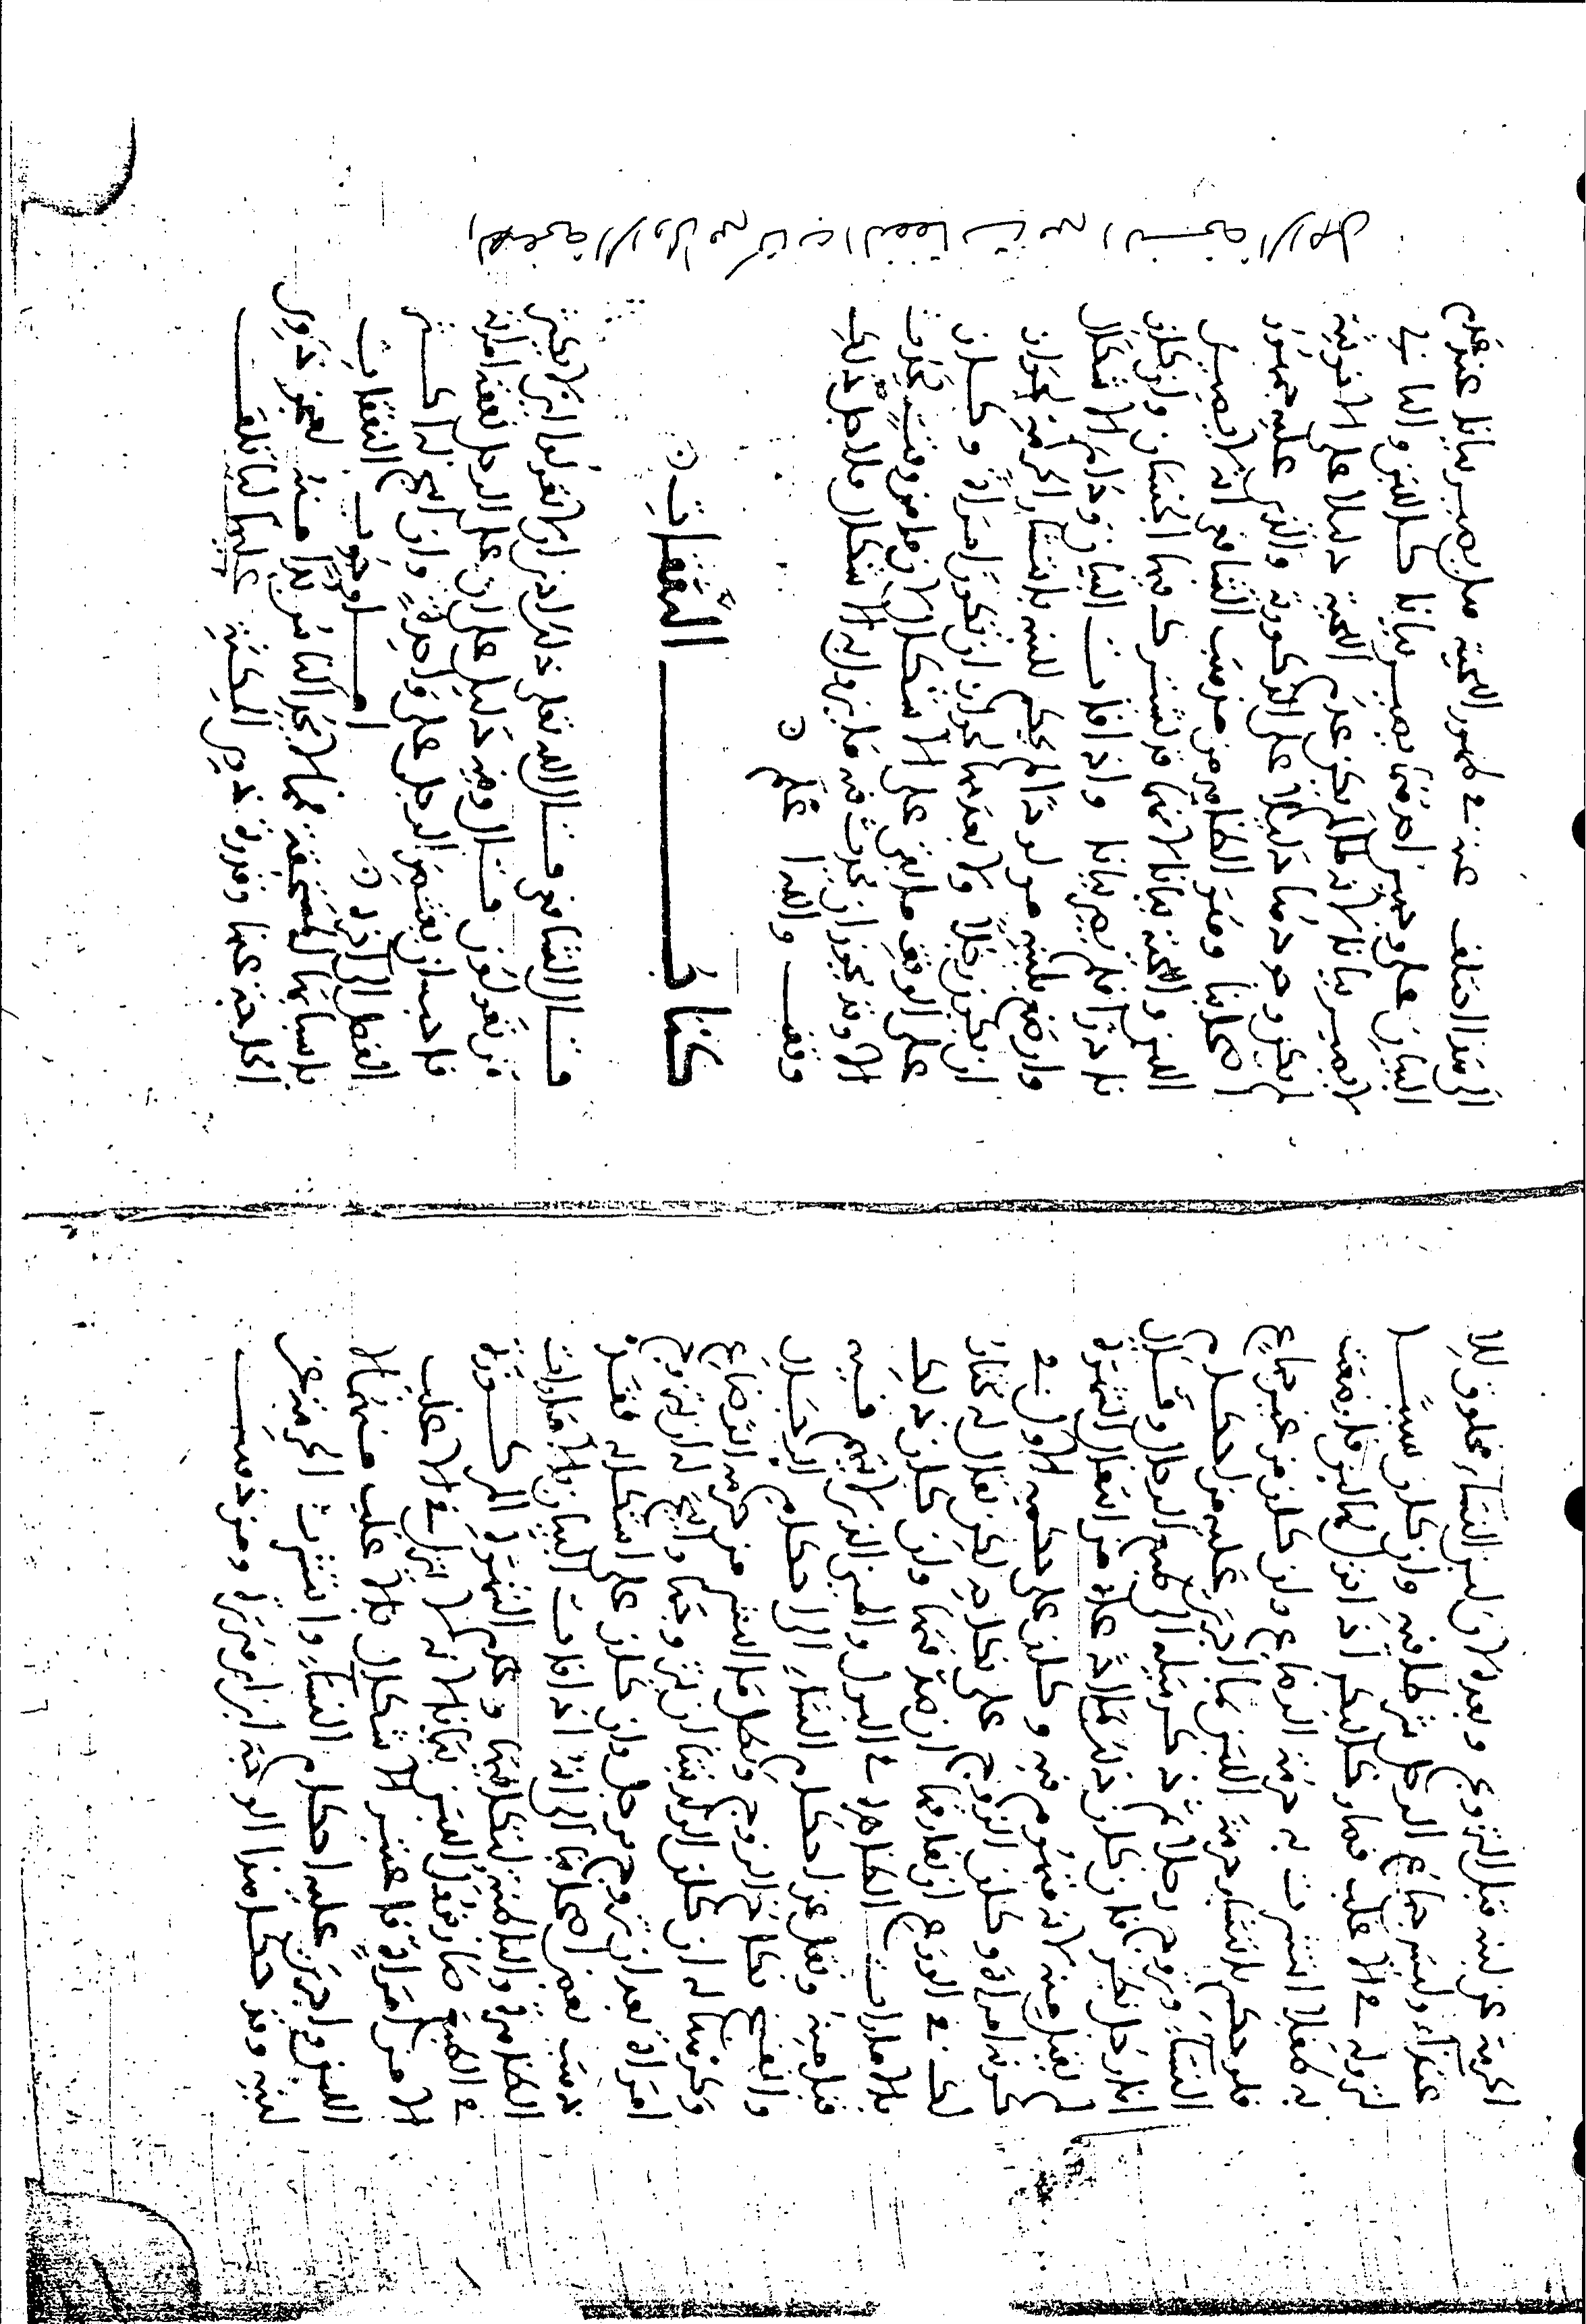 الحرمة عن لبنه قبل التزويج وبعده لان لبن النساء مخلوق للا
غذاء وليس جماع الرجل شرطا فيه وان كان سببا
لنزوله في الاغلب فصار كالبكر اذا نزل لها لبن فارضعت
به طفلا انتشرت به حرمة الرضاع وان كان من غير جماع
فلو حكم بانتشار حرمة اللبن بما اجرى عليه من احكام
النساء وتزوج رجلا ثم ذكر ميله الى طبع الرجال وقال
انا رجل نظر فان كان ذلك عادة من انتقال الشهوة
لم يقبل منه لانه متهوم فيه وكان على حكمه الاول في
كونه امراة وكان الزوج على نكاحه لكن يقال له نختار
لك في الورع ان تفارقها ان صدقها وان كان ذلك
بالامارات الظاهرة في البول والمني الذي لا يتهم فيه
قبل منه ونقل عن احكام النساء الى احكام الرجال
وانفسخ نكاح الزوج وبطل ما انتشر من حرمة الرضاع
له ان كان الولد ان يتزوجها وابيح له ان يتزوج
امراة بعد ان تزوج برجل وان كان على اشكاله فقد
ذهب بعض اصحابنا الى انه اذا فات البيان بالامارات
الظاهرة والباطنة لتكافيها وعدم الشهوة المركوزة
في الطبع صار نزول اللبن بيانا لانه لا ينزل في الاغلب
الا من امراة فاعتبر الاشكال بالاغلب منهما
اللبن واجرى عليه احكام النساء وانتشرت الحرمة عن
لبنه وقد حكى هذا الوجه ابن ابي هريرة ومن ذهب
الصفحة الاولى من كتاب النفقات من النسخة الاصل
الى هذا اختلف عنه في ظهور اللحية هل يصير بيانا عند عدم
البيان على وجهين احدهما يصير بيانا كاللبن والثاني
لا يصير بيانا لانه لما لم يكن عدم اللحية دليلا على الانوثية
لم يكن وجودها دليلا على الذكورية والذي عليه جمهور
اصحابنا وهو الظاهر من مذهب الشافعي انه لا يصير
اللبن واللحية بيانا لانهما قد يشترك فيهما الجنسان وان كان
نادرا فلم يصر بيانا واذا فات البيان ودام الاشكال
وارضع بلبنه مولودا لم يحكم للبنه بانتشار الحرمة لجواز
ان يكون رجلا ولا بعدمها لجواز ان تكون امراة وكان
على الوقف ما بقي على الاشكال وما من وقت يحدث
الا وقد يجوز ان يحدث فيه ما يزول به الاشكال فلاجل ذلك
وقف والله اعلم
كتاب النفقات
قال الشافعي قال الله تعالى ذلك ادنى ان لا تعولوا اي لا يكثر
من تعولون قال وفيه دليل على ان على الرجل نفقة امراته
فاحب ان يقتصر الرجل على واحدة وان ابيح له اكثر
الفصل الى اخره اما وجوب النفقات
باسبابها المستحقة فما لا يجد الناس بدا منه لعجز ذوي
الحاجة عنها وقدرة ذوي المكنة عليها لياتلف